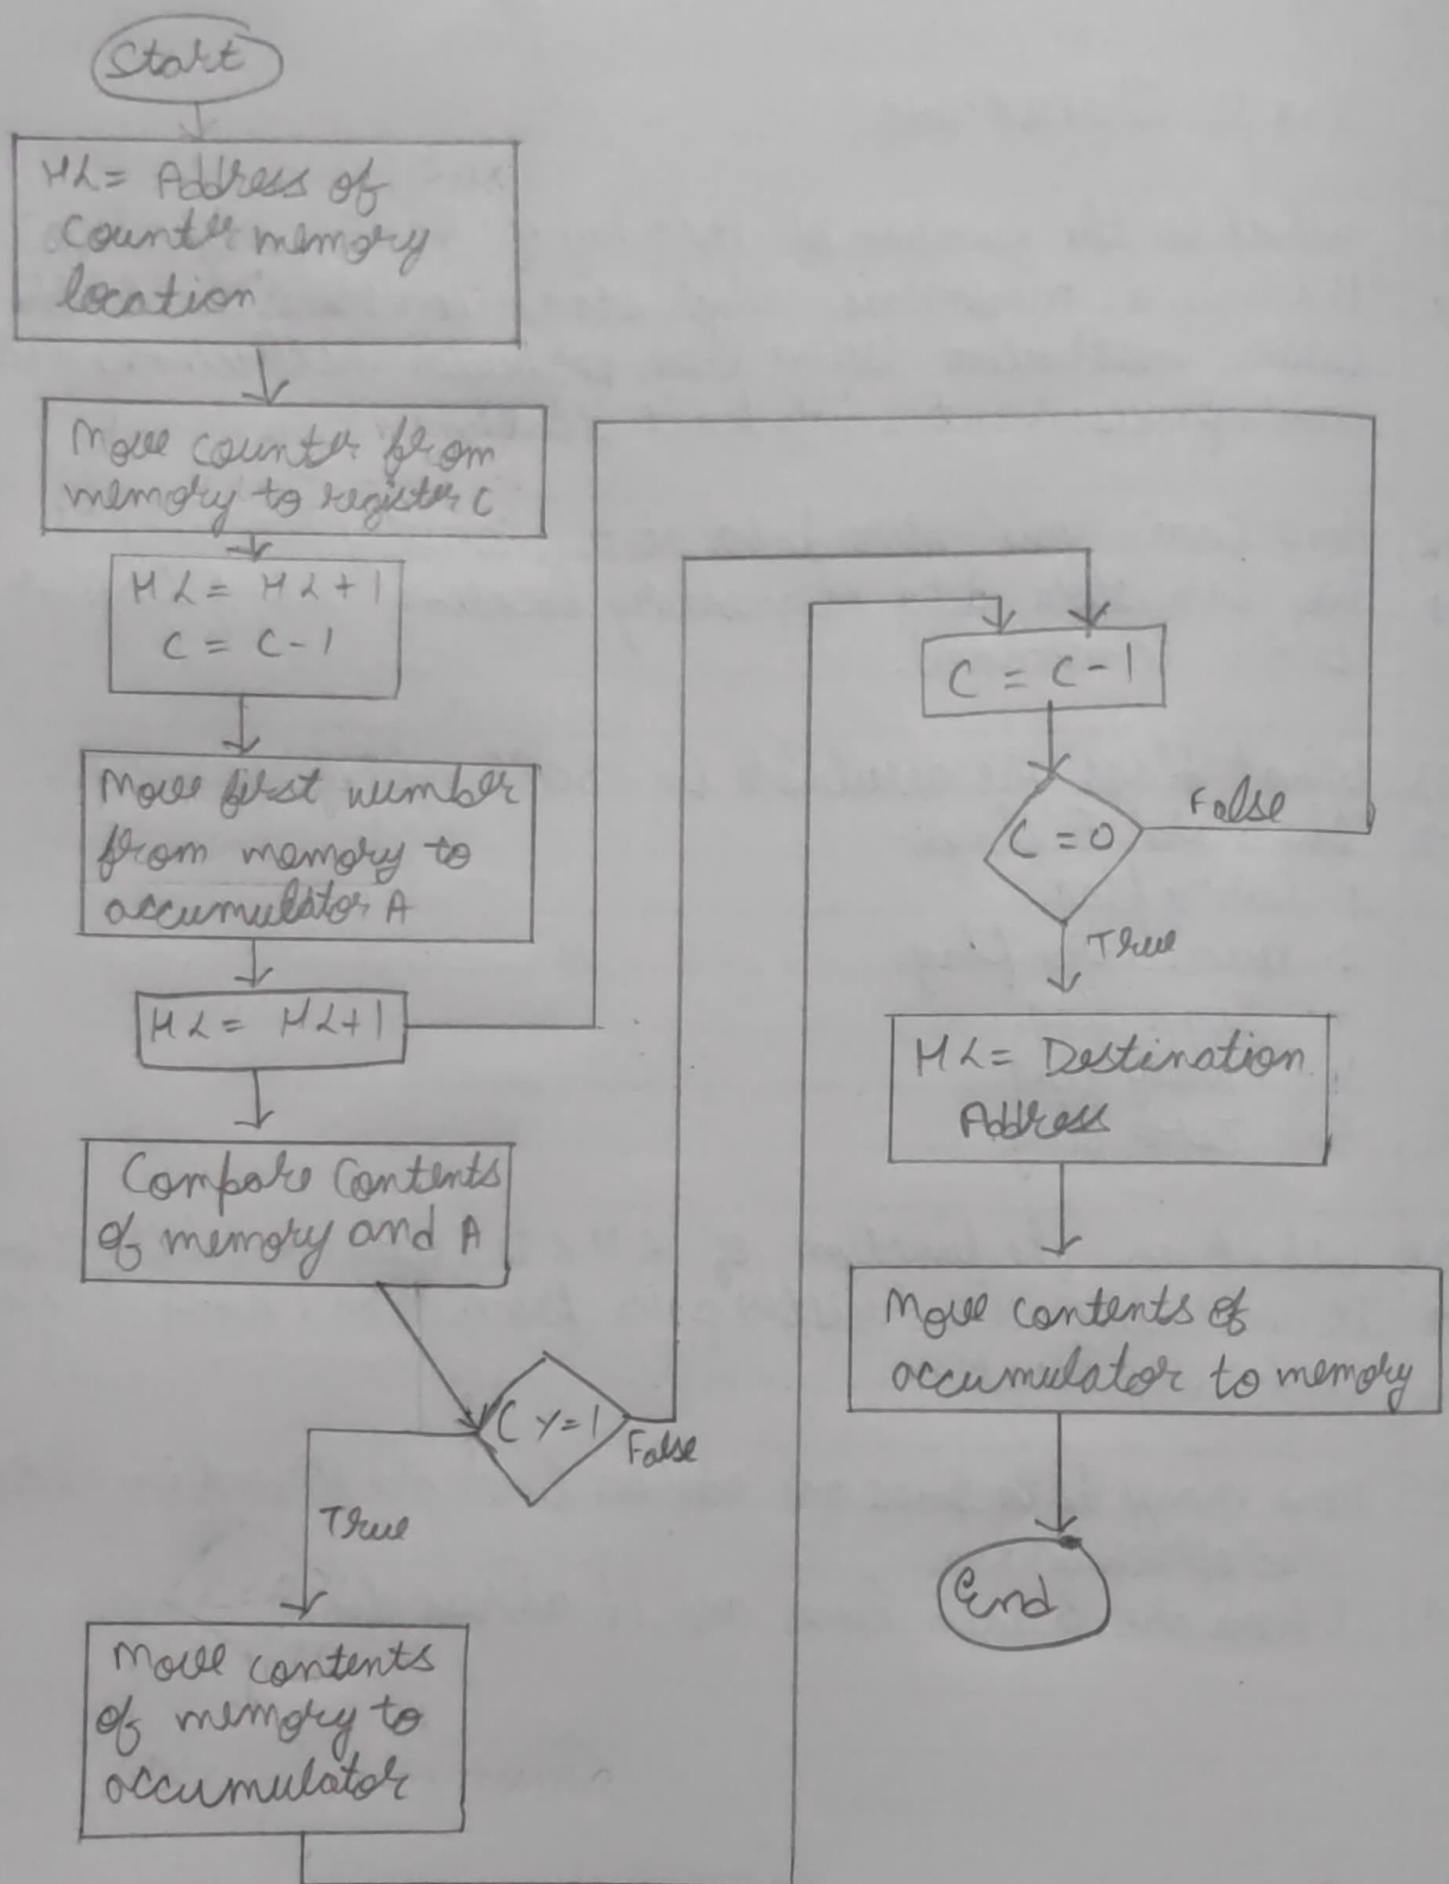 Start
HL= Address of
counter memory
location
Move counter from
memory to register C
HL = HL+1
C = C-1
Move first number
from memory to
accumulator A
HL = HL+1
Compare Contents
of memory and A
CY=1
False
True
Move contents
of memory to
accumulator
C = C-1
C = 0
False
True
HL= Destination
Address
Move contents of
accumulator to memory
End